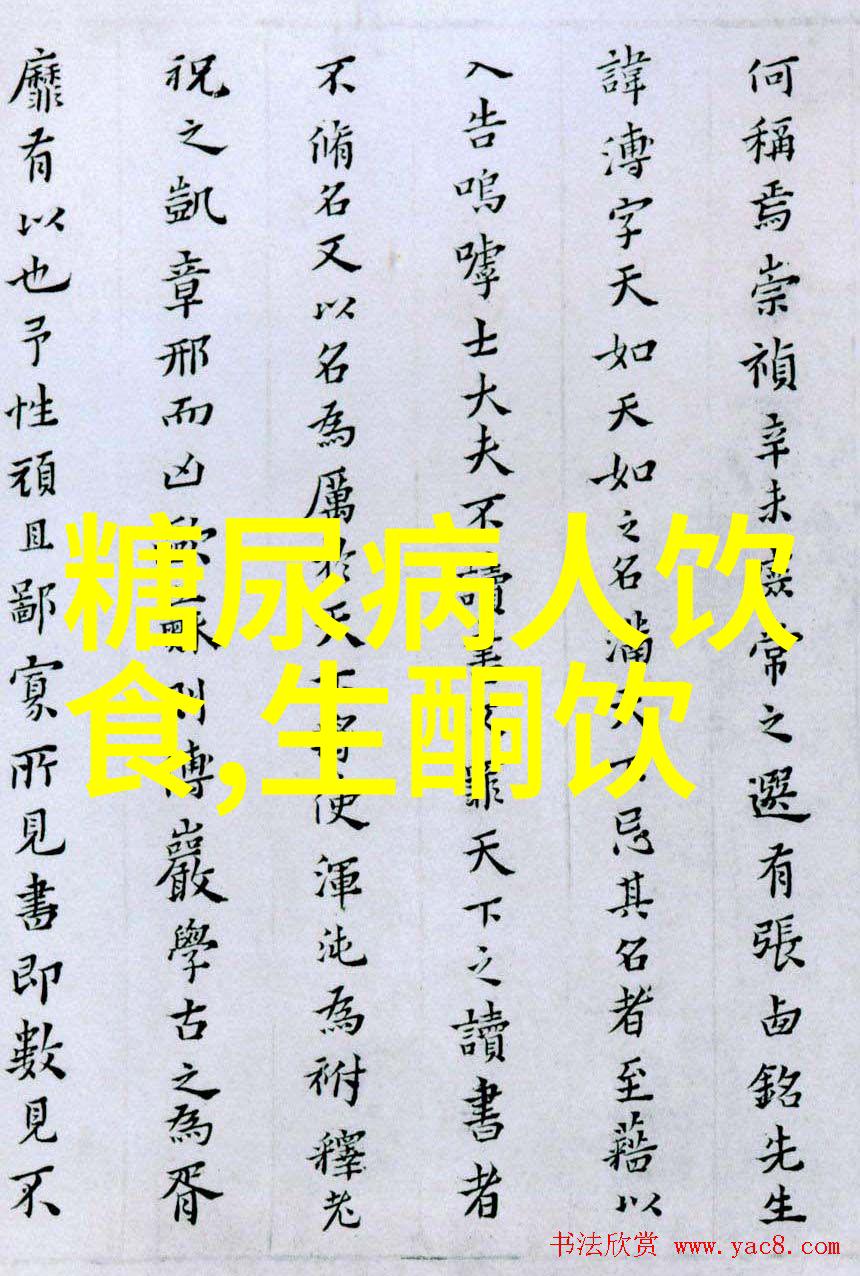 何稱焉崇禎辛未
常之選有張卤銘先生
諱溥字天如天如之名滿天下忌其名者至藉以
入告嗚嘑士大夫不讀
罪天下之讀書者
不脩名又以名為厲於天
使渾沌為祔釋老
祝之凱章邢而凶
則傅巖學古之為胥
靡有以也予性頑且鄙寡所見書即數見不
糖尿病人饮
食,生酮饮
书法欣赏 www.yac8.com